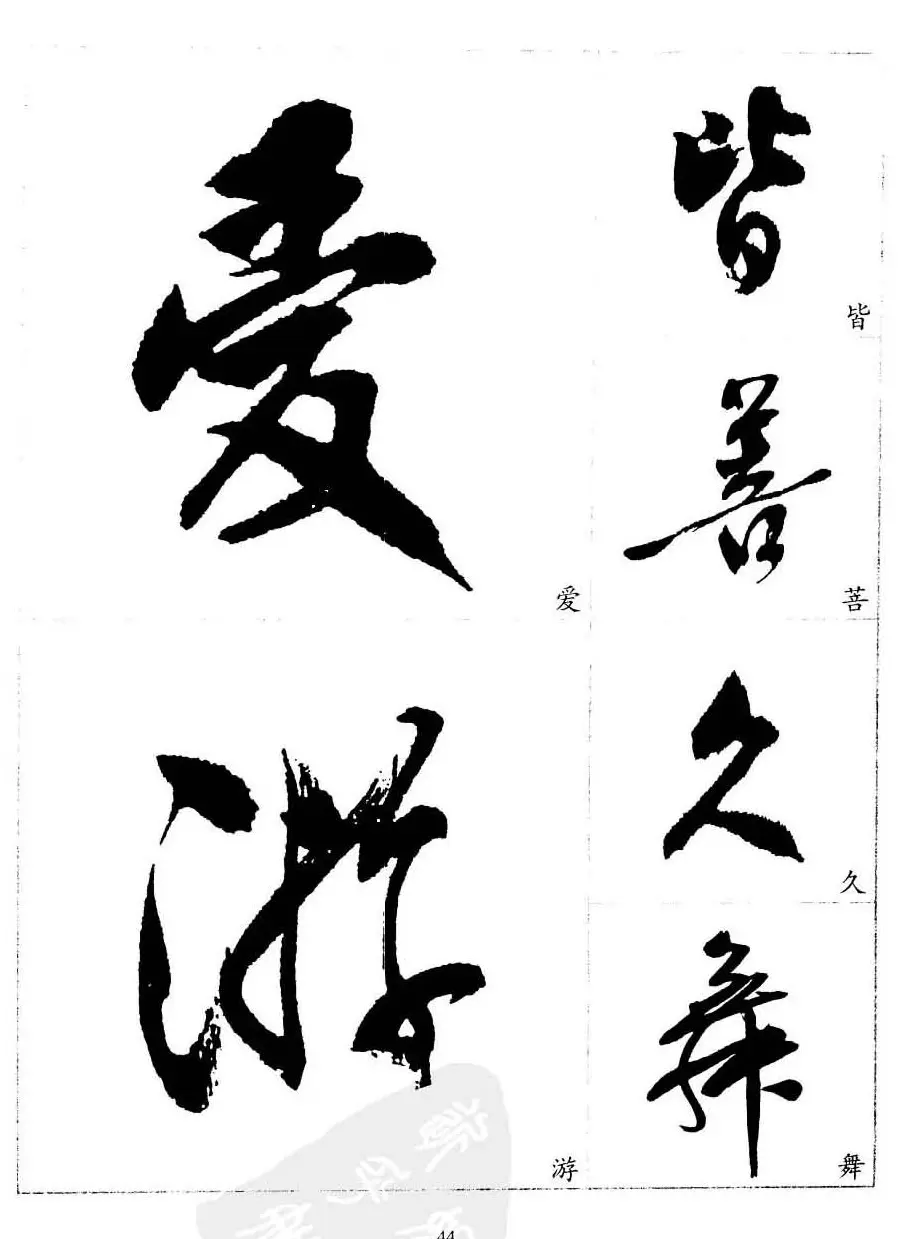 爱
爱
游
游
皆
皆
善
菩
久
久
舞
舞
44